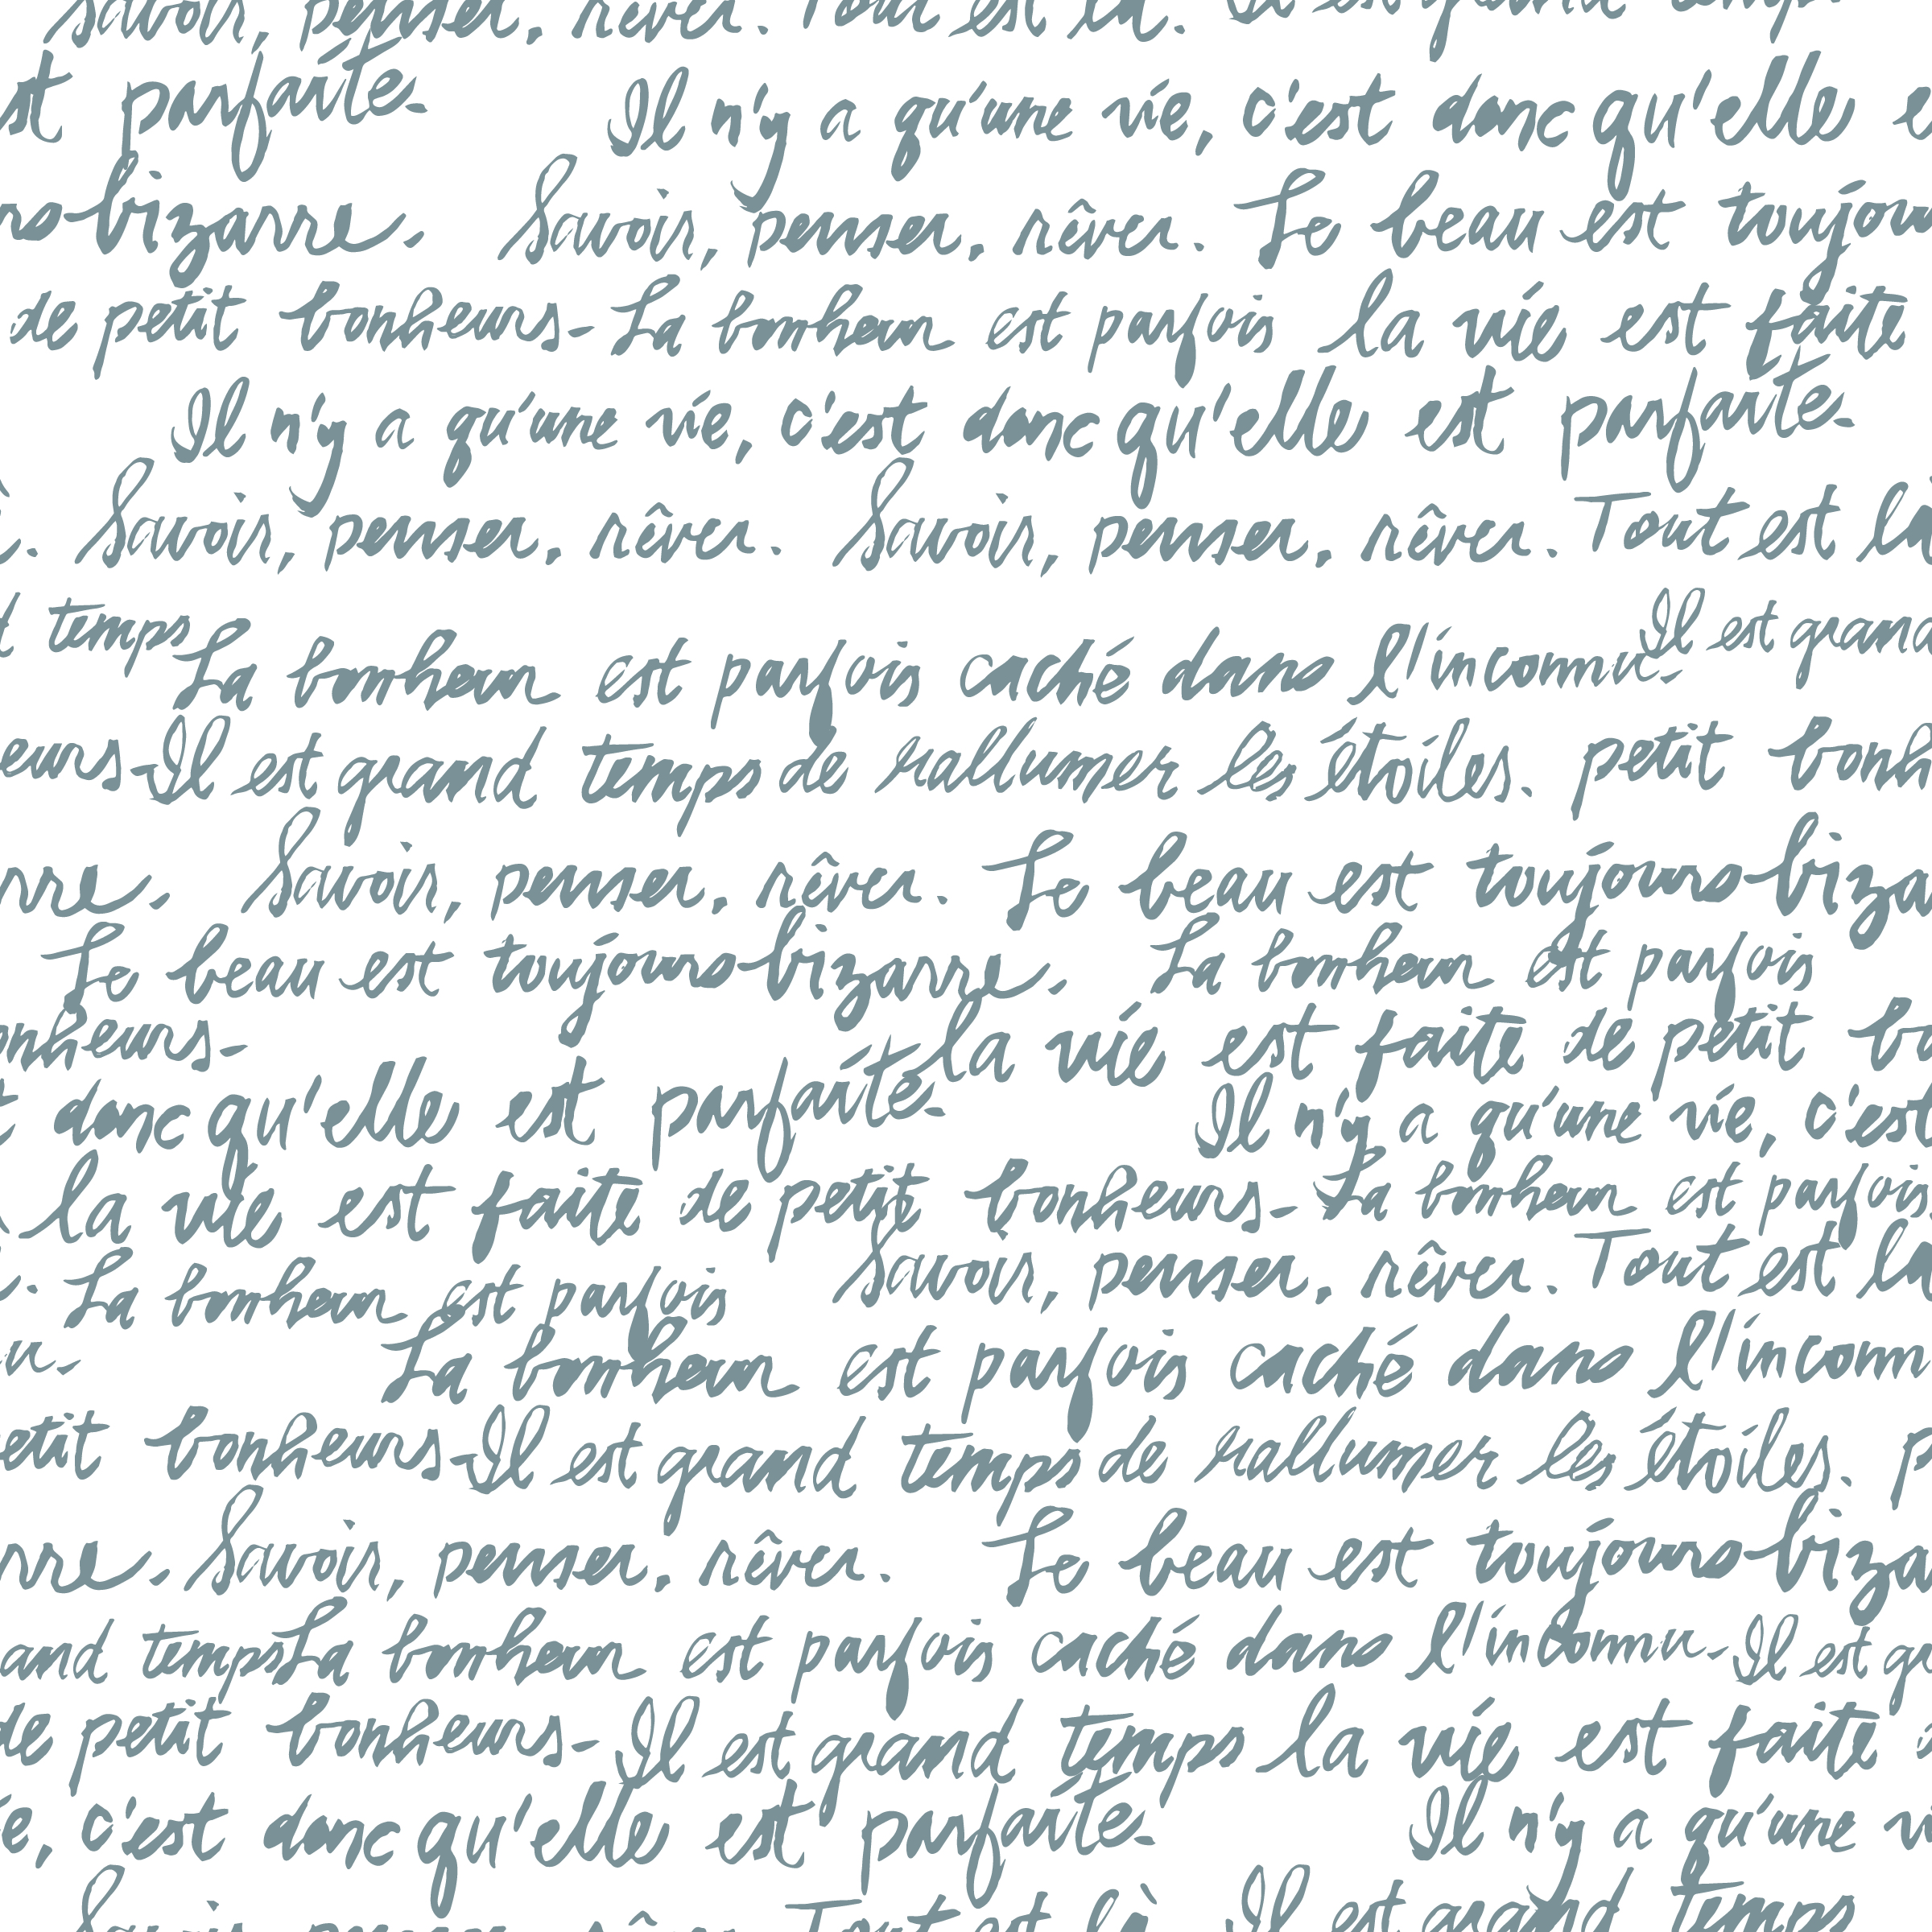 Savoir, penser, rêver. Tout est là. Il est
est parfaite. Il n'y a qu'une vie, c'est donc qu'elle
bizarre. Savoir, penser, rêver. Le beau est toujours
de petit bonheurs. La bonheur est parfois la vie est faite
Il n'y a qu'une vie, c'est donc qu'elle est parfaite.
Savoir, penser, rêver. Savoir, penser, rêver. Tout est là
temps La bonheur est parfois caché dans l'inconnu. Il est grand
eurs. Il est grand temps de rallumer les étoiles. petit bonh
Savoir, penser, rêver. Le beau est toujours bizar
Le beau est toujours bizarre. La bonheur est parfois
onheurs. la vie est faite de petit bo
donc qu'elle est parfaite. Il n'y a qu'une vie, c'est
la vie est faite de petit bonheurs. La bonheur est parfois
La bonheur est parfois Savoir, penser, rêver. Tout est là
u. La bonheur est parfois caché dans l'inconn
etit bonheurs. Il est grand temps de rallumer les étoiles. p
rre. Savoir, penser, rêver. Le beau est toujours bizar
and temps La bonheur est parfois caché dans l'inconnu. Il est gr
de petit bonheurs. Il est grand temps la vie est faite
e, c'est donc qu'elle est parfaite. Il n'y a qu'une v
Savoir, penser, rêver. Tout est là Il est grand temps